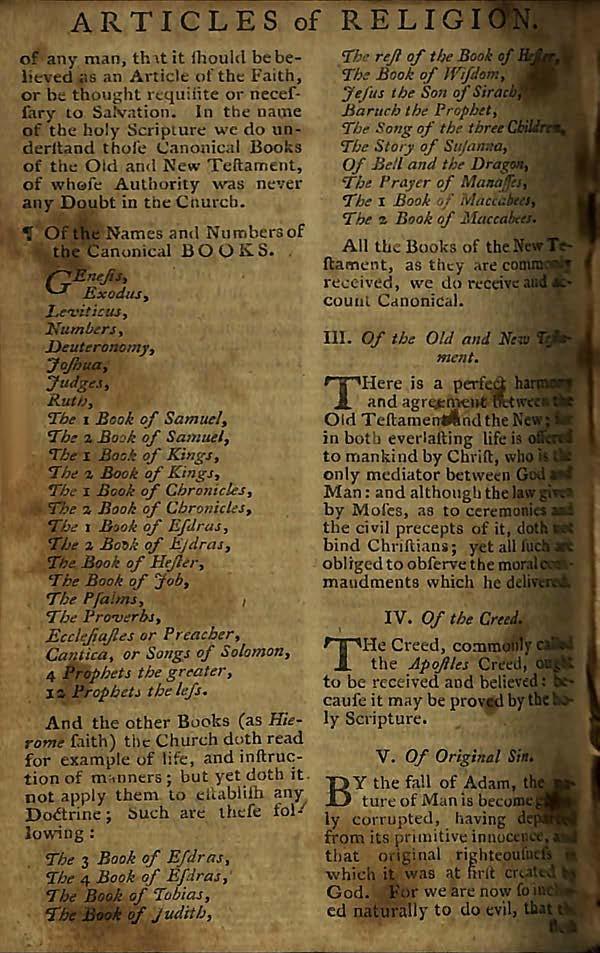 ARTICLES of RELIGION.
of any man, that it ſhould be be-
lieved as an Article of the Faith,
or be thought requiſite or neceſ-
ſary to Salvation. In the name
of the holy Scripture we do un-
derſtand thoſe Canonical Books
of the Old and New Teſtament,
of whoſe Authority was never
any Doubt in the Church.
¶ Of the Names and Numbers of
the Canonical BOOKS.
GEneſis,
Exodus,
Leviticus,
Numbers,
Deuteronomy,
Joſhua,
Judges,
Ruth,
The 1 Book of Samuel,
The 2 Book of Samuel,
The 1 Book of Kings,
The 2 Book of Kings,
The 1 Book of Chronicles,
The 2 Book of Chronicles,
The 1 Book of Eſdras,
The 2 Book of Eſdras,
The Book of Heſter,
The Book of Job,
The Pſalms,
The Proverbs,
Eccleſiaſtes or Preacher,
Cantica, or Songs of Solomon,
4 Prophets the greater,
12 Prophets the leſs.
And the other Books (as Hie-
rome ſaith) the Church doth read
for example of life, and inſtruc-
tion of manners; but yet doth it
not apply them to eſtabliſh any
Doctrine; Such are theſe fol-
lowing:
The 3 Book of Eſdras,
The 4 Book of Eſdras,
The Book of Tobias,
The Book of Judith,
The reſt of the Book of Heſter,
The Book of Wiſdom,
Jeſus the Son of Sirach,
Baruch the Prophet,
The Song of the three Children,
The Story of Suſanna,
Of Bell and the Dragon,
The Prayer of Manaſſes,
The 1 Book of Maccabees,
The 2 Book of Maccabees.
All the Books of the New Te-
ſtament, as they are commonly
received, we do receive and ac-
count Canonical.
III. Of the Old and New Teſta-
ment.
THere is a perfect harmony
and agreement between the
Old Teſtament and the New; for
in both everlaſting life is offered
to mankind by Chriſt, who is the
only mediator between God and
Man: and although the law given
by Moſes, as to ceremonies and
the civil precepts of it, doth not
bind Chriſtians; yet all ſuch are
obliged to obſerve the moral com-
mandments which he delivered.
IV. Of the Creed.
THe Creed, commonly called
the Apoſtles Creed, ought
to be received and believed: be-
cauſe it may be proved by the ho-
ly Scripture.
V. Of Original Sin.
BY the fall of Adam, the na-
ture of Man is become
ly corrupted, having departed
from its primitive innocence, and
that original righteouſneſs in
which it was at firſt created by
God. For we are now ſo inclin-
ed naturally to do evil, that the
fleſh